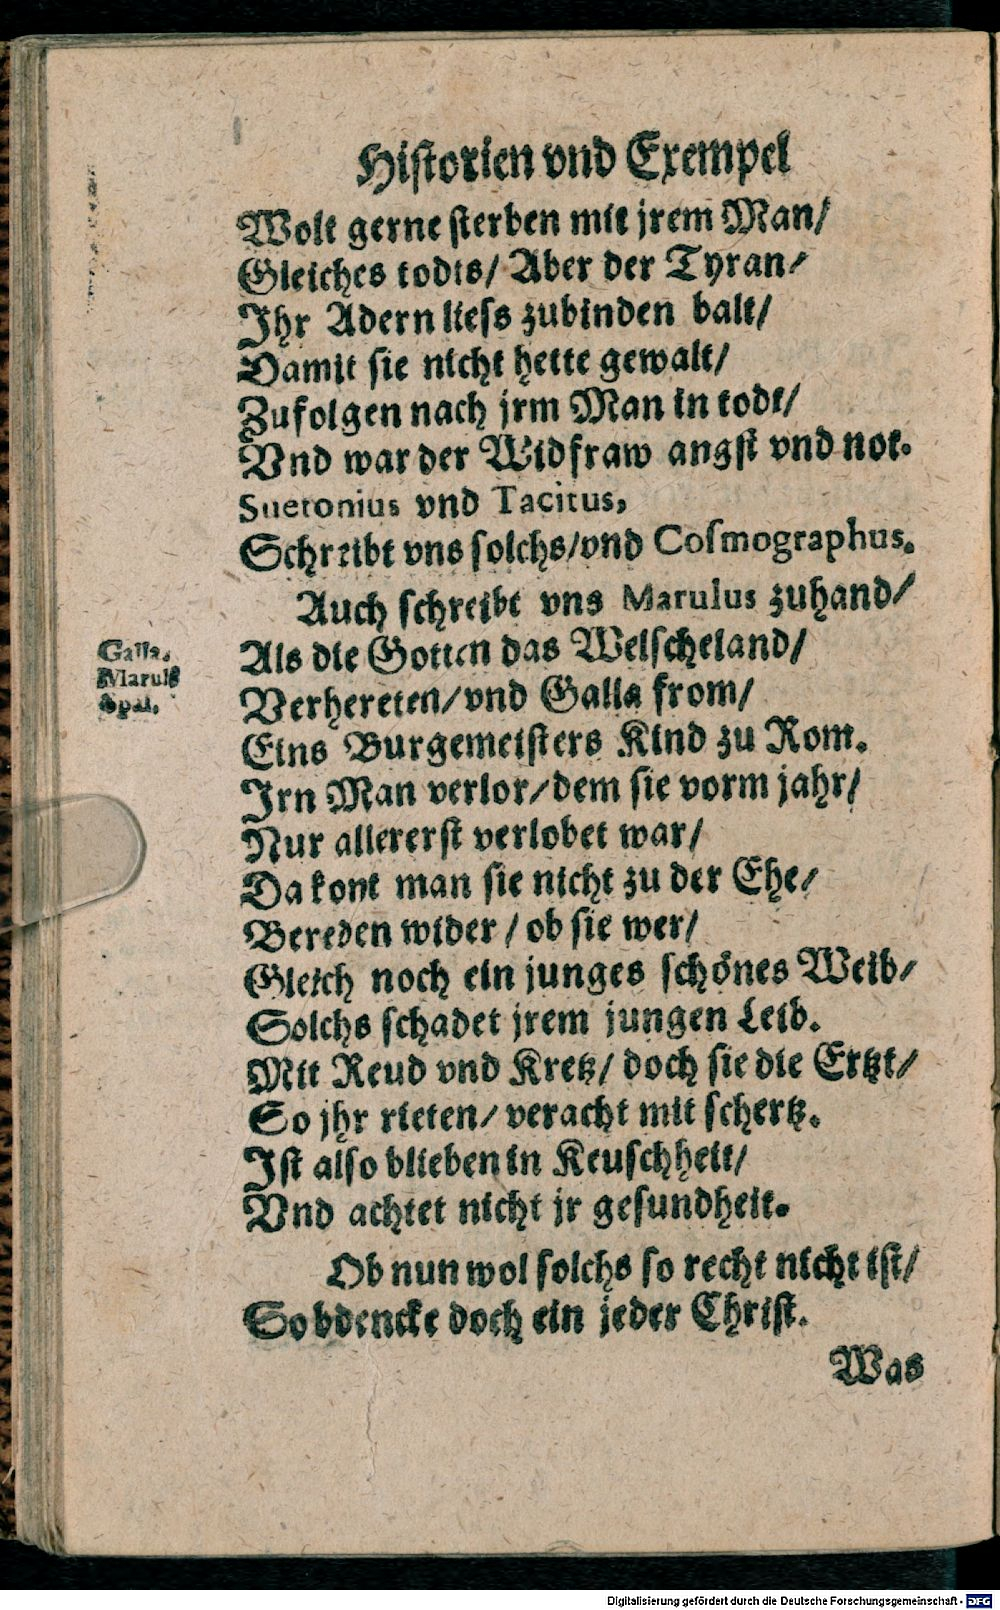 Historien vnd Exempel
Wolt gerne sterben mit jrem Man/
Gleiches todts/ Aber der Tyran/
Jhr Adern liess zubinden balt/
Damit sie nicht hette gewalt/
Zufolgen nach jrm Man in todt/
Vnd war der Widfraw angst vnd not.
Suetonius vnd Tacitus,
Schreibt vns solchs/vnd Cosmographus.
Auch schreibt vns Marulus zuhand/
Galla.
Maruls
Spal.
Als die Gotten das Welscheland/
Verhereten/vnd Galla from/
Eins Burgemeisters Kind zu Rom.
Jrn Man verlor/dem sie vorm jahr/
Nur allererst verlobet war/
Da kont man sie nicht zu der Ehe/
Bereden wider/ ob sie wer/
Gleich noch ein junges schönes Weib/
Solchs schadet jrem jungen Leib.
Mit Reud vnd Kretz/ doch sie die Ertzt/
So jhr rieten/ veracht mit schertz.
Jst also blieben in Keuschheit/
Vnd achtet nicht jr gesundheit.
Ob nun wol solchs so recht nicht ist/
So bdencke doch ein jeder Christ.
Was
Digitalisierung gefördert durch die Deutsche Forschungsgemeinschaft - DFG